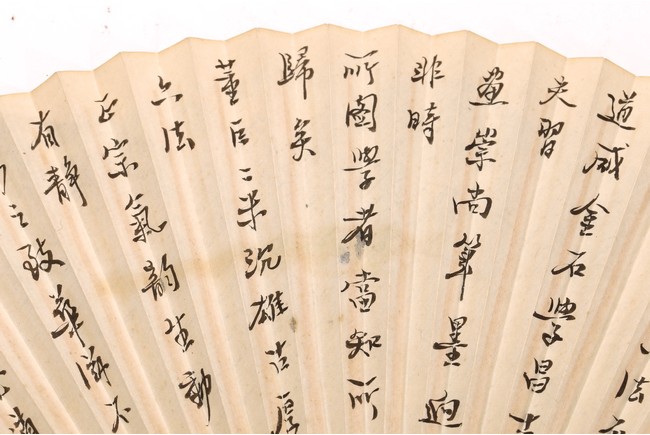 法
道咸金石學昌古
夫習
畫崇尚筆墨迥
非時
所圖學者當知所
歸矣
董巨二米沈雄古厚
六法
正宗氣韵生動
有靜
之致華滋